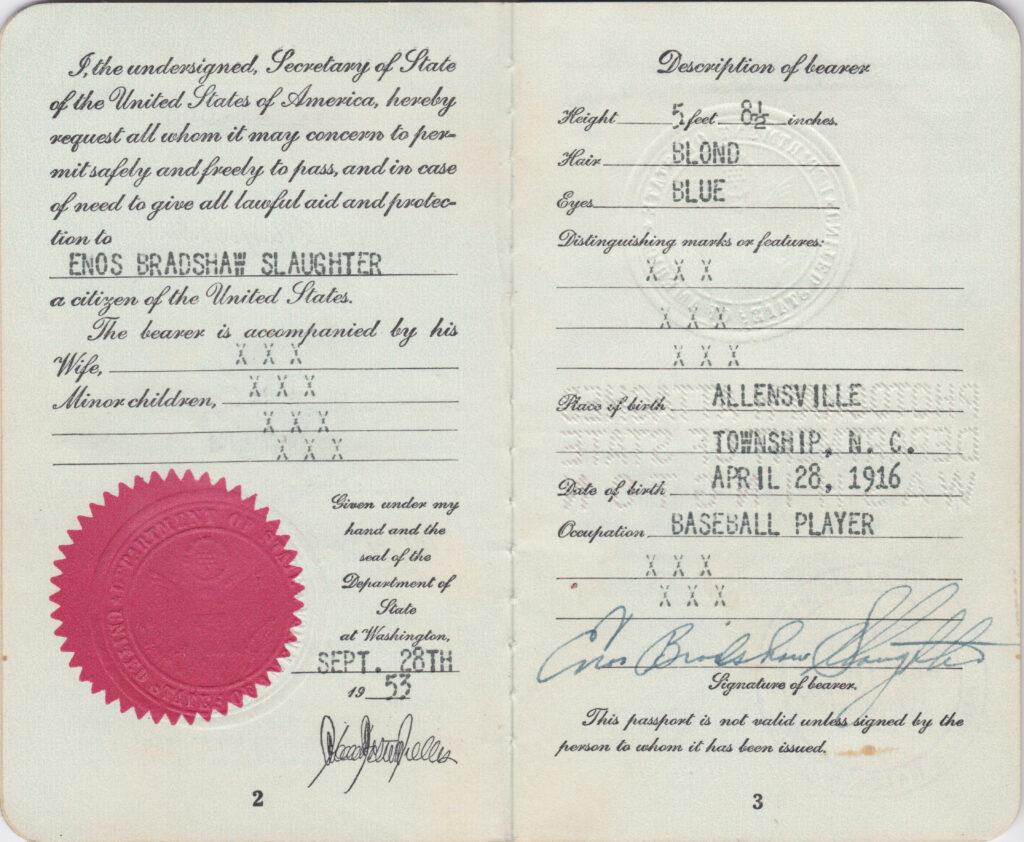 I, the undersigned, Secretary of State
of the United States of America, hereby
request all whom it may concern to per-
mit safely and freely to pass, and in case
of need to give all lawful aid and protec-
tion to
ENOS BRADSHAW SLAUGHTER
a citizen of the United States.
The bearer is accompanied by his
Wife, X X X
Minor children, X X X
X X X
X X X
Given under my
hand and the
seal of the
Department of
State
at Washington,
SEPT. 28TH
19 53
DEPARTMENT OF STATE
UNITED STATES OF
2
Description of bearer
Height 5 feet 8½ inches.
Hair BLOND
Eyes BLUE
Distinguishing marks or features:
X X X
X X X
X X X
Place of birth ALLENSVILLE
TOWNSHIP, N. C.
Date of birth APRIL 28, 1916
Occupation BASEBALL PLAYER
X X X
X X X
Enos Bradshaw Slaughter
Signature of bearer.
This passport is not valid unless signed by the
person to whom it has been issued.
3